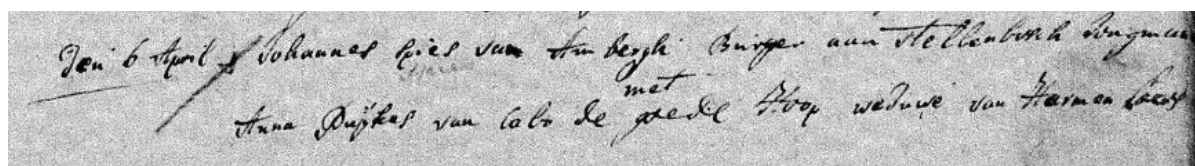 Den 6 April Johannes Spies van Ambergh Burger aan Stellenbosch Jongman
met
Anna Duijkas van Cabo de goede Hoop weduwe van Harmen